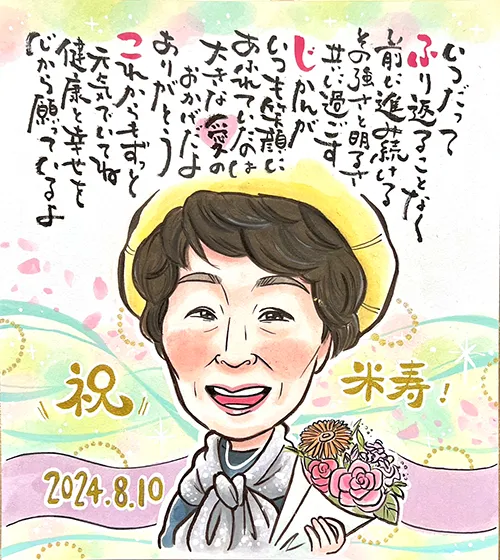 いつだって
ふり返ることなく
前に進み続ける
その強さと明るさ
共に過ごす
じかんが
いつも笑顔に
あふれていたのは
大きな愛の
おかげだよ
ありがとう
これからもずっと
元気でいてね
健康と幸せを
心から願っているよ
祝
米寿!
2024.8.10